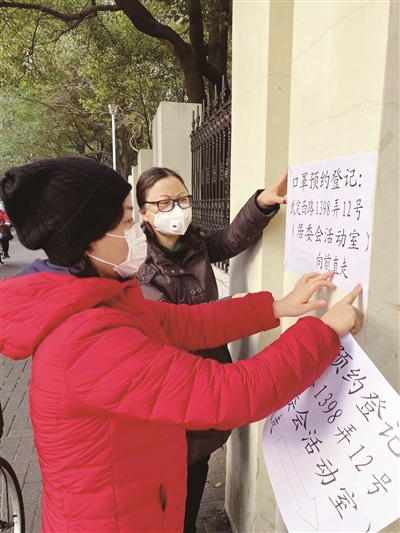 口罩预约登记:
武定西路1398弄12号
(居委会活动室)
向前直走
预约登记
1398弄12号
委会活动室)